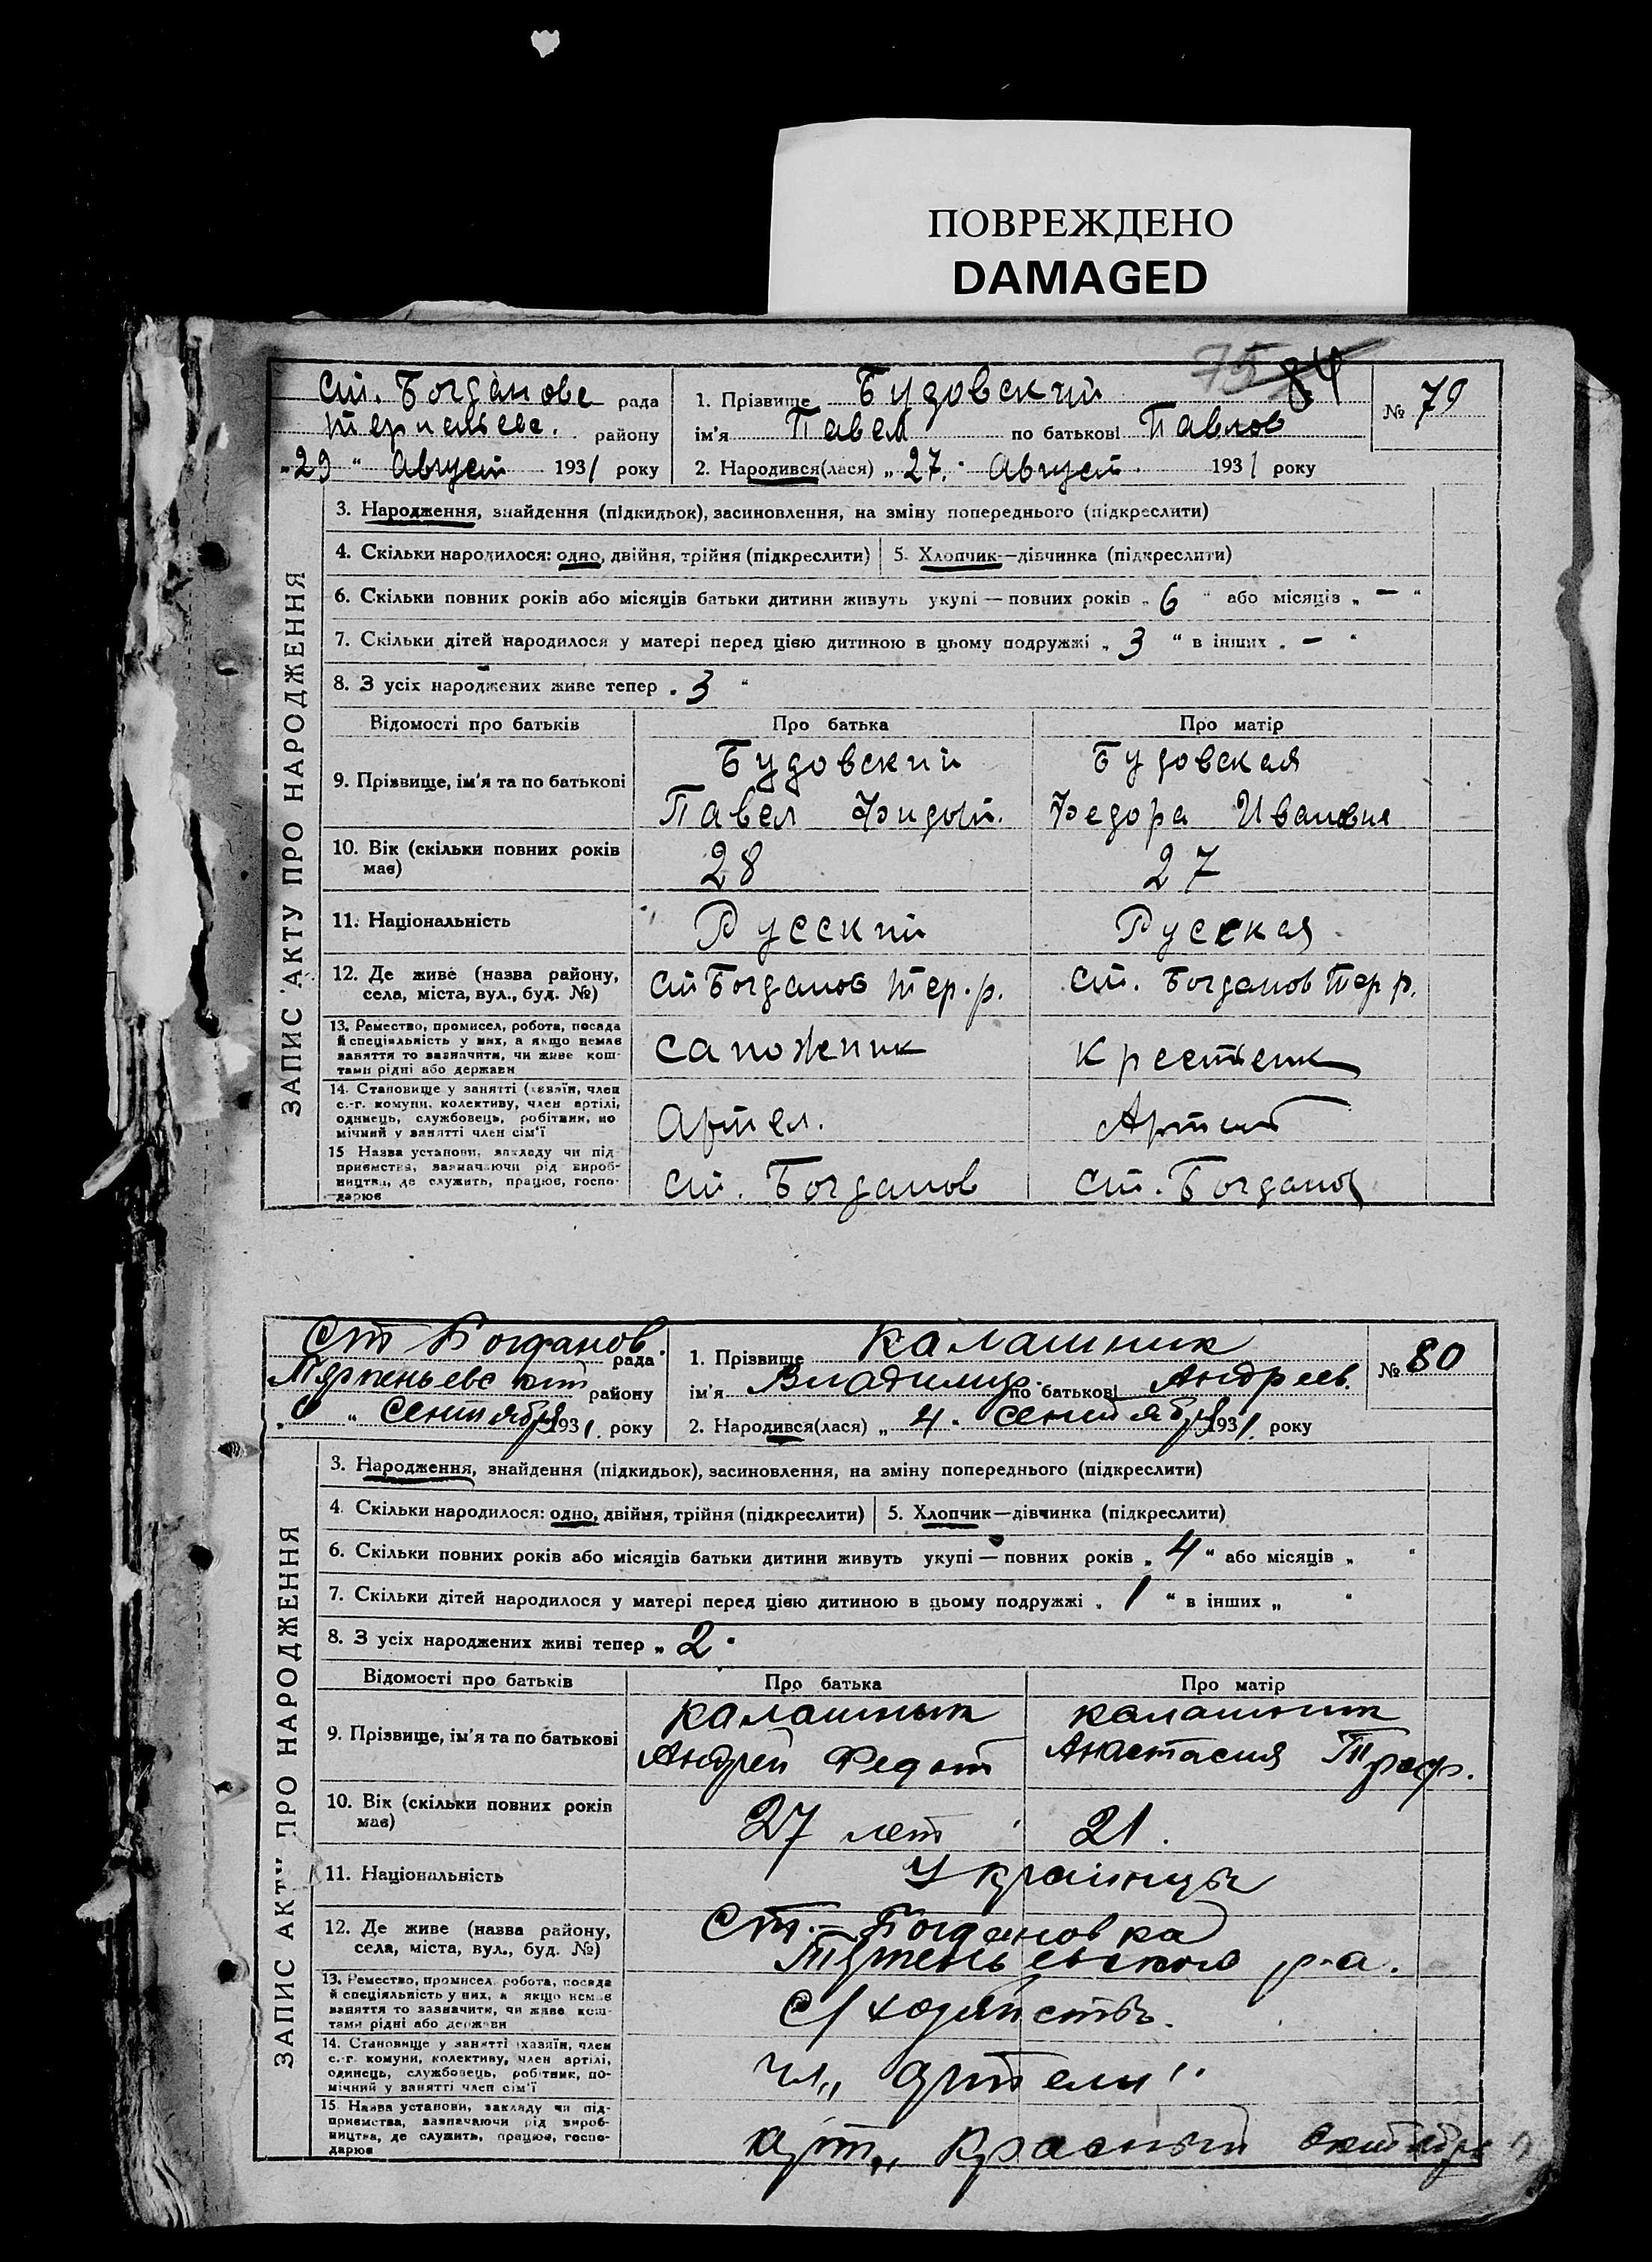 ПОВРЕЖДЕНО
DAMAGED
75 84
ст. Богданове рада
Терпеньеве. району
„29“ Август 1931 року
1. Прізвище Будовский
ім'я Павел по батькові Павлов
2. Народився(лася) „27.“ Август 1931 року
№ 79
ЗАПИС АКТУ ПРО НАРОДЖЕННЯ
3. Народження, знайдення (підкидьок), засиновлення, на зміну попереднього (підкреслити)
4. Скільки народилося: одно, двійня, трійня (підкреслити) 5. Хлопчик—дівчинка (підкреслити)
6. Скільки повних років або місяців батьки дитини живуть укупі — повних років „6“ або місяців „—“
7. Скільки дітей народилося у матері перед цією дитиною в цьому подружжі „3“ в інших „—“
8. З усіх народжених живе тепер „3“
Відомості про батьків Про батька Про матір
9. Прізвище, ім'я та по батькові Будовский Будовская
Павел Федора Ивановна
10. Вік (скільки повних років має) 28 27
11. Національність Русский Русская
12. Де живе (назва району, села, міста, вул., буд. №) ст Богданов Тер. р. ст. Богданов Тер р.
13. Ремество, промисел, робота, посада й спеціяльність у них, а якщо немає заняття то зазначити, чи живе коштами рідні або держави сапожник
14. Становище у занятті (хазяїн, член с.-г. комуни, колективу, член артілі, одинець, службовець, робітник, помічний у занятті член сім'ї Артел.
15 Назва установи, закладу чи підприємства, зазначаючи рід виробництва, де служить, працює, господарює ст. Богданов ст. Богданов
Ст Богданов. рада
району
Сентября 1931. року
1. Прізвище Калашник
ім'я Владимир по батькові Андреев.
2. Народився(лася) „4“ Сентября 1931. року
№ 80
ЗАПИС АКТУ ПРО НАРОДЖЕННЯ
3. Народження, знайдення (підкидьок), засиновлення, на зміну попереднього (підкреслити)
4. Скільки народилося: одно, двійня, трійня (підкреслити) 5. Хлопчик—дівчинка (підкреслити)
6. Скільки повних років або місяців батьки дитини живуть укупі — повних років „4“ або місяців „ “
7. Скільки дітей народилося у матері перед цією дитиною в цьому подружжі „1“ в інших „ “
8. З усіх народжених живі тепер „2“
Відомості про батьків Про батька Про матір
9. Прізвище, ім'я та по батькові Калашник Калашник
Андрей Федот Анастасия Троф.
10. Вік (скільки повних років має) 27 лет 21.
11. Національність Украинцы
12. Де живе (назва району, села, міста, вул., буд. №) Ст. Богдановка
р-а.
13. Ремество, промисел, робота, посада й спеціяльність у них, а якщо немає заняття то зазначити, чи живе коштами рідні або держави с/хозяйств.
14. Становище у занятті (хазяїн, член с.-г. комуни, колективу, член артілі, одинець, службовець, робітник, помічний у занятті член сім'ї чл „Артели“
15. Назва установи, закладу чи підприємства, зазначаючи рід виробництва, де служить, працює, господарює арт „Красный Октябрь“